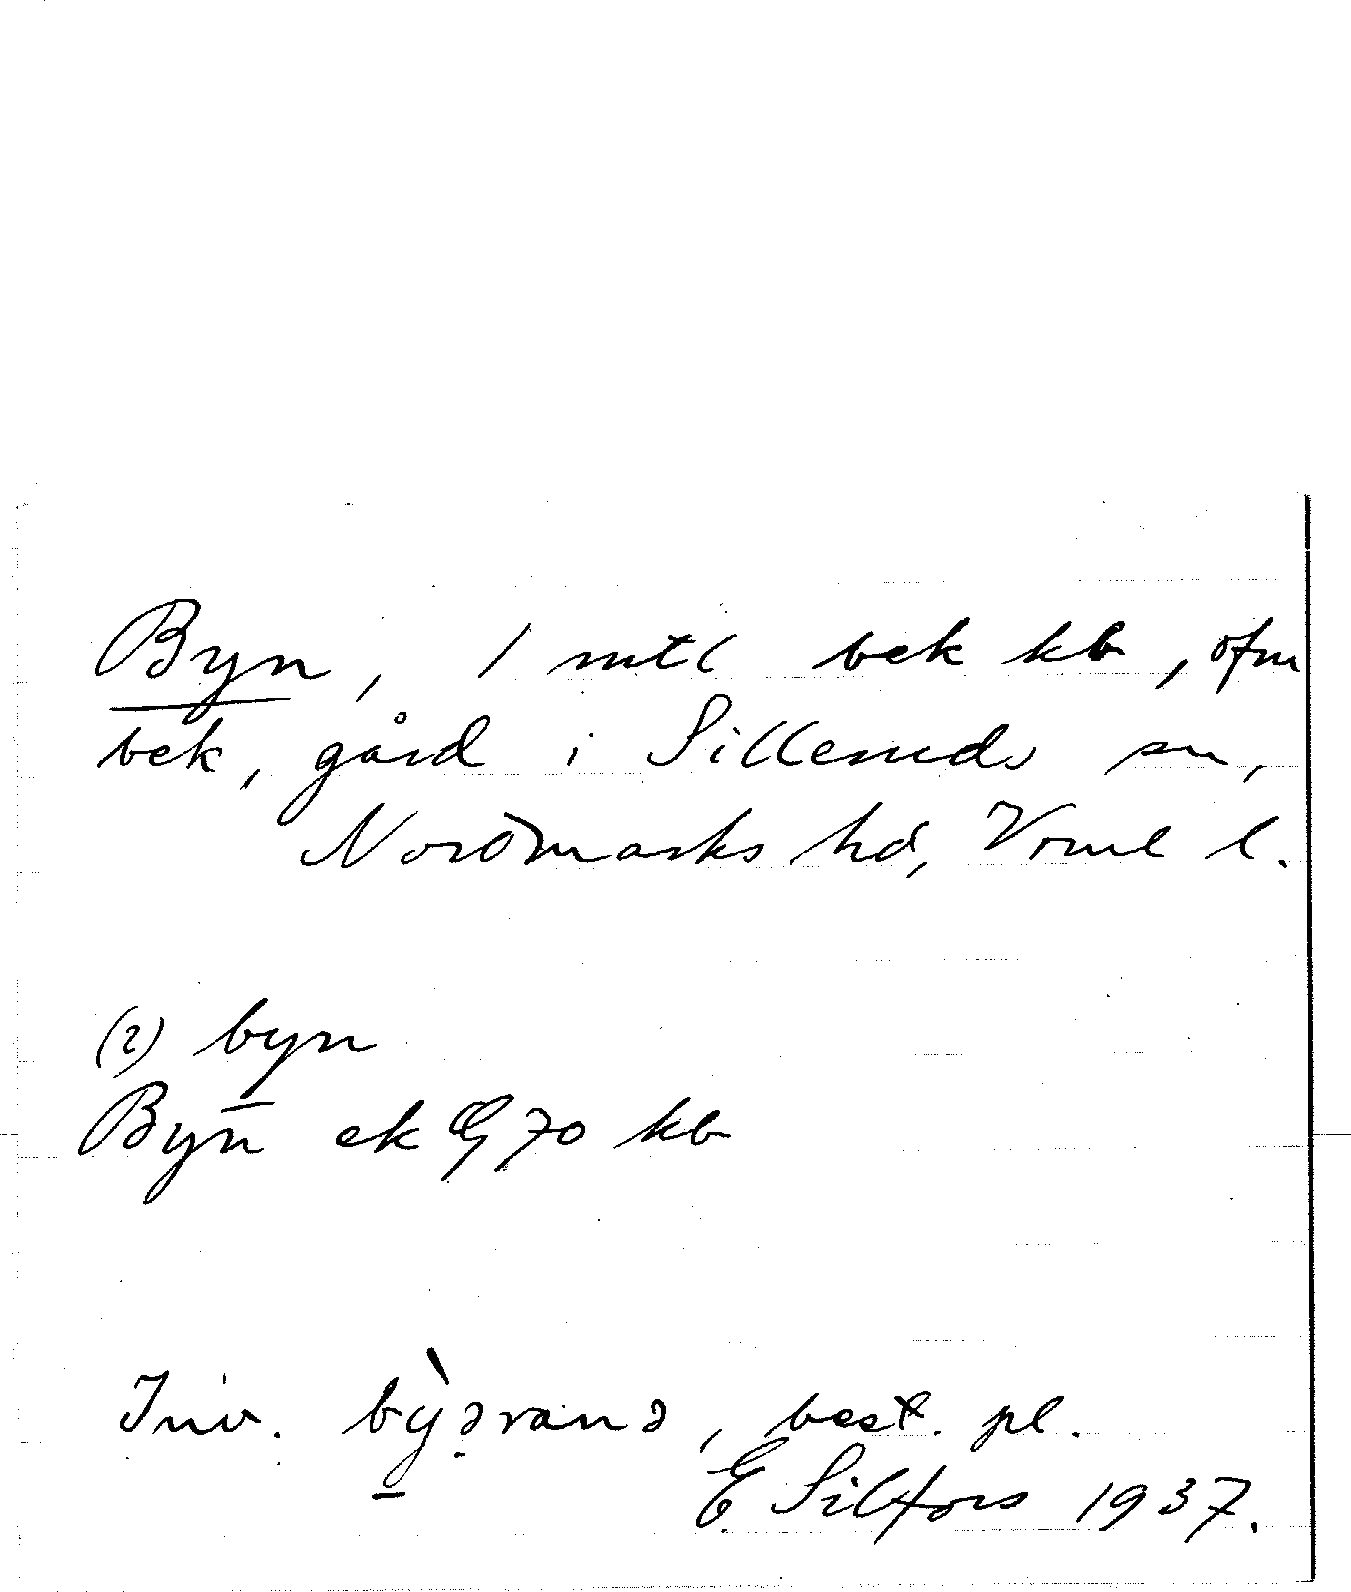 Byn, 1 mtl bek kb, ofm
bek, gård i Sillerruds sn,
Nordmarks hd, Vrml l.
(i) byn
Byn ek G 70 kb
Inv. bỳ̠əranə, best. pl.
E Silfors 1937.